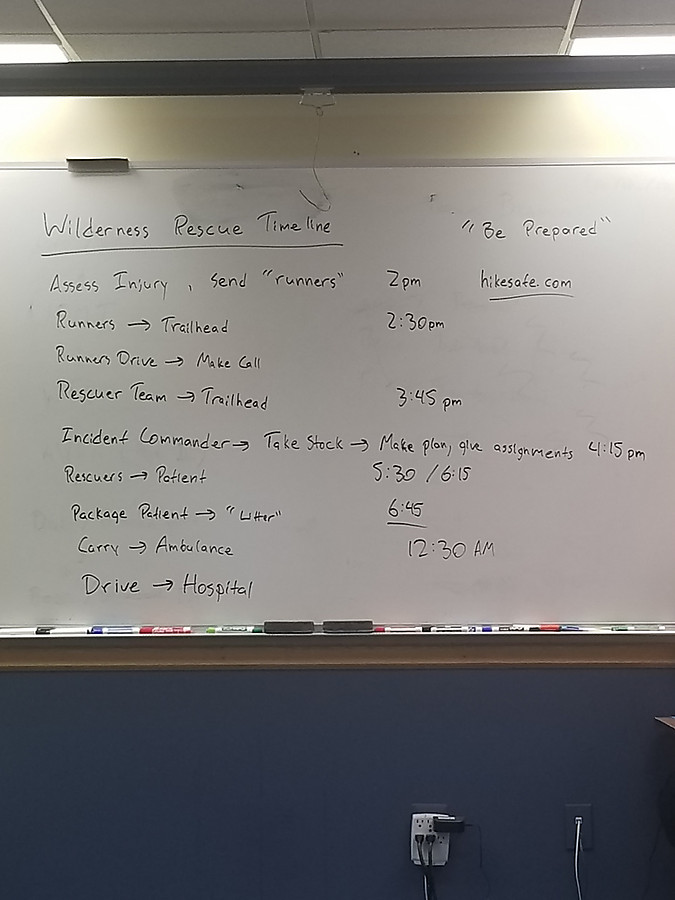 Wilderness Rescue Timeline "Be Prepared"
Assess Injury, send "runners" 2pm hikesafe.com
Runners → Trailhead 2:30pm
Runners Drive → Make Call
Rescuer Team → Trailhead 3:45 pm
Incident Commander → Take Stock → Make plan, give assignments 4:15 pm
Rescuers → Patient 5:30 / 6:15
Package Patient → "Litter" 6:45
Carry → Ambulance 12:30 AM
Drive → Hospital